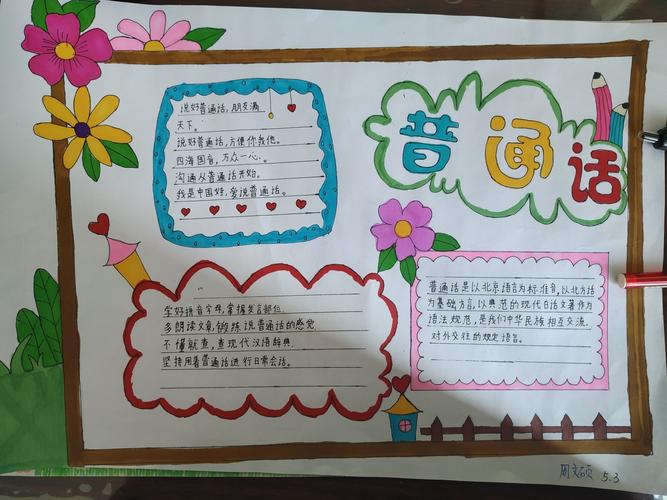 普通话
说好普通话，朋友满
天下。
说好普通话，方便你我他。
四海国音，万众一心。
沟通从普通话开始。
我是中国娃，爱说普通话。
学好拼音字母，掌握发言部位
多朗读文章，锻炼说普通话的感觉
不懂就查，查现代汉语辞典
坚持用普通话进行日常会话。
普通话是以北京语言为标准音，以北方话
为基础方言，以典范的现代白话文著作为
语法规范，是我们中华民族相互交流，
对外交往的规定语言。
周文硕 5.3